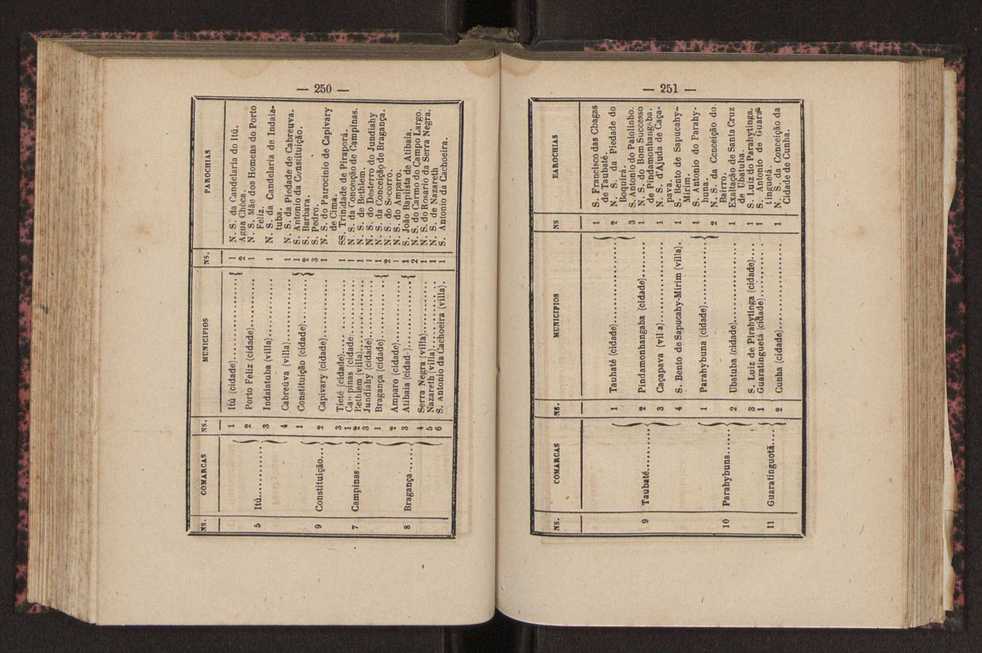 — 250 —
NS. COMARCAS NS. MUNICIPIOS NS. PAROCHIAS
5 Itú.......... 1 Itú (cidade).......... 1 N. S. da Candelaria do Itú.
2 Agua Chóca.
2 Porto Feliz (cidade).......... 1 N. S. Mãe dos Homens do Porto
Feliz.
3 Indaiatuba (villa).......... 1 N. S. da Candelaria de Indaia-
tuba.
4 Cabreúva (villa).......... 1 N. S. da Piedade de Cabreuva.
9 Constituição... 1 Constituição (cidade).......... 1 S. Antonio da Constituição.
2 S. Barbara.
3 S. Pedro.
2 Capivary (cidade).......... 1 N. S. do Patrocinio de Capivary
de Cima.
3 Tieté (cidade).... 1 SS. Trindade de Piraporá.
7 Campinas...... 1 Campinas (cidade.......... 1 N. S. da Conceição de Campinas.
2 Bethlem (villa).......... 1 N. S. de Bethlem.
3 Jundiahy (cidade).......... 1 N. S. do Desterro do Jundiahy
8 Bragança...... 1 Bragança (cidade).......... 1 N. S. da Conceição de Bragança.
2 N. S. do Socorro.
2 Amparo (cidade).......... 1 N. S. do Amparo.
3 Atibaia (cidad.).......... 1 S. João Baptista de Atibaia.
2 N. S. do Carmo do Campo Largo.
4 Serra Negra (villa).......... 1 N. S. do Rosario da Serra Negra.
5 Nazareth (villa).......... 1 N. S. de Nazareth
6 S. Antonio da Cachoeira (villa). 1 S. Antonio da Cachoeira.
— 251 —
NS. COMARCAS NS. MUNICIPIOS NS PAROCHIAS
9 Taubaté.......... 1 Taubaté (cidade).......... 1 S. Francisco das Chagas
de Taubaté.
2 N. S. da Piedade do
Boquirá.
3 S. Antonio do Paiolinho.
2 Pindamonhangaba (cidade)...... 1 N. S. do Bom Successo
de Pindamonhangaba.
3 Caçapava (vil a).......... 1 N. S. d'Ajuda de Caça-
pava.
4 S. Bento de Sapucahy-Mirim (villa). 1 S. Bento de Sapucahy-
Mirim.
10 Parahybuna..... 1 Parahybuna (cidade).......... 1 S. Antonio do Parahy-
buna.
2 N. S. da Conceição do
Bairro.
2 Ubatuba (cidade).......... 1 Exaltação de Santa Cruz
de Ubatuba.
3 S. Luiz de Pirahytinga (cidade).... 1 S. Luiz do Parahytinga.
11 Guaratinguetá... 1 Guaratinguetá (cidade).......... 1 S. Antonio de Guara-
tinguetá.
2 Cunha (cidade).......... 1 N. S. da Conceição da
Cidade de Cunha.